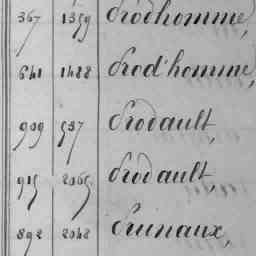 367 1359 Prodhomme,
641 1488 Prod'homme,
909 537 Prodault,
915 2065 Prodault,
892 2048 Pruinaux,